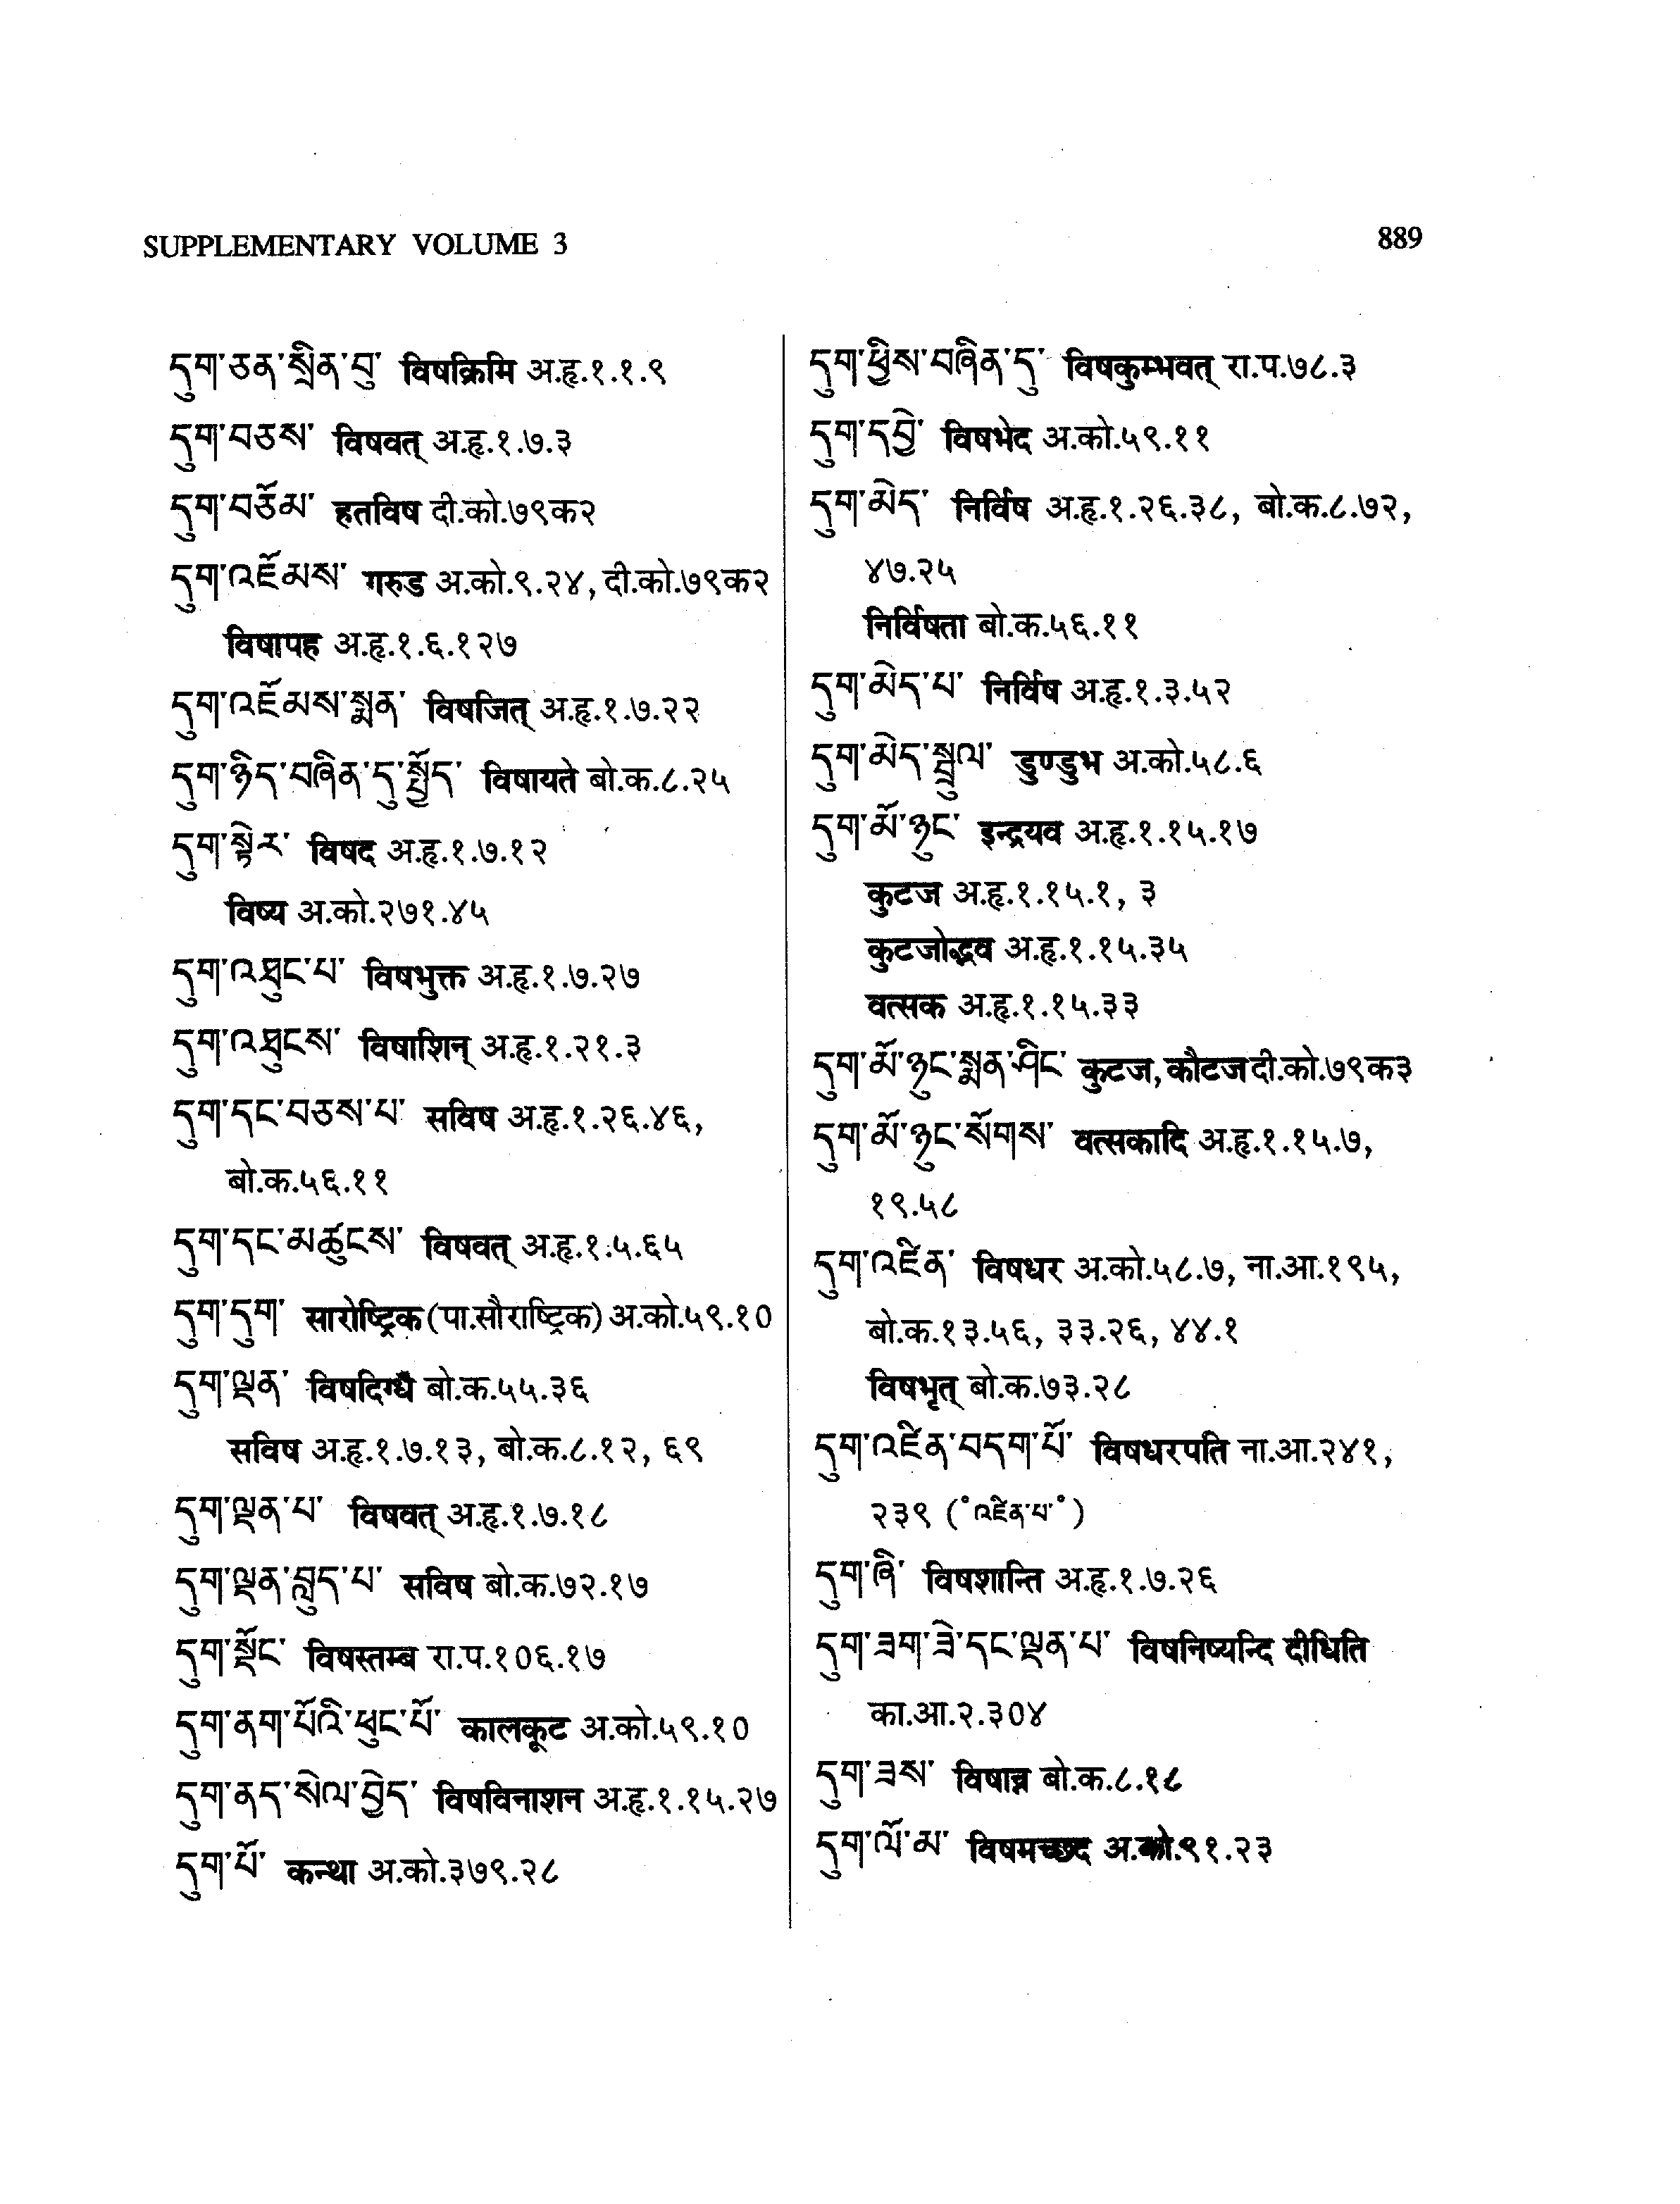 SUPPLEMENTARY VOLUME 3
889
དུག་ཅན་སྲིན་བུ་ विषक्रिमि अ.हृ.१.१.९
དུག་བཅས་ विषवत् अ.हृ.१.७.३
དུག་བཅོམ་ हतविष दी.को.७९क२
དུག་འཇོམས་ गरुड अ.को.९.२४, दी.को.७९क२
विषापह अ.हृ.१.६.१२७
དུག་འཇོམས་སྨན་ विषजित् अ.हृ.१.७.२२
དུག་ཉིད་བཞིན་དུ་སྤྱོད་ विषायते बो.क.८.२५
དུག་སྟེར་ विषद अ.हृ.१.७.१२
विष्य अ.को.२७१.४५
དུག་འཐུང་པ་ विषभुक्त अ.हृ.१.७.२७
དུག་འཐུངས་ विषाशिन् अ.हृ.१.२१.३
དུག་དང་བཅས་པ་ सविष अ.हृ.१.२६.४६,
बो.क.५६.११
དུག་དང་མཚུངས་ विषवत् अ.हृ.१.५.६५
དུག་དུག་ सारोष्ट्रिक (पा.सौराष्ट्रिक) अ.को.५९.१०
དུག་ལྡན་ विषदिग्ध बो.क.५५.३६
सविष अ.हृ.१.७.१३, बो.क.८.१२, ६९
དུག་ལྡན་པ་ विषवत् अ.हृ.१.७.१८
དུག་ལྡན་བླུད་པ་ सविष बो.क.७२.१७
དུག་སྡོང་ विषस्तम्ब रा.प.१०६.१७
དུག་ནག་པོའི་ཕུང་པོ་ कालकूट अ.को.५९.१०
དུག་ནད་སེལ་བྱེད་ विषविनाशन अ.हृ.१.१५.२७
དུག་པོ་ कन्था अ.को.३७९.२८
དུག་ཕྱིས་བཞིན་དུ་ विषकुम्भवत् रा.प.७८.३
དུག་དབྱེ་ विषभेद अ.को.५९.११
དུག་མེད་ निर्विष अ.हृ.१.२६.३८, बो.क.८.७२,
४७.२५
निर्विषता बो.क.५६.११
དུག་མེད་པ་ निर्विष अ.हृ.१.३.५२
དུག་མེད་སྦྲུལ་ डुण्डुभ अ.को.५८.६
དུག་མོ་ཉུང་ इन्द्रयव अ.हृ.१.१५.१७
कुटज अ.हृ.१.१५.१, ३
कुटजोद्भव अ.हृ.१.१५.३५
वत्सक अ.हृ.१.१५.३३
དུག་མོ་ཉུང་སྨན་ཤིང་ कुटज, कौटज दी.को.७९क३
དུག་མོ་ཉུང་སོགས་ वत्सकादि अ.हृ.१.१५.७,
१९.५८
དུག་འཛིན་ विषधर अ.को.५८.७, ना.आ.१९५,
बो.क.१३.५६, ३३.२६, ४४.१
विषभृत् बो.क.७३.२८
དུག་འཛིན་བདག་པོ་ विषधरपति ना.आ.२४१,
२३९ (°འཛིན་པ་°)
དུག་ཞི་ विषशान्ति अ.हृ.१.७.२६
དུག་ཟག་ཟེ་དང་ལྡན་པ་ विषनिष्यन्दि दीधिति
का.आ.२.३०४
དུག་ཟས་ विषान्न बो.क.८.१८
དུག་ལོ་མ་ विषमच्छद अ.को.९१.२३